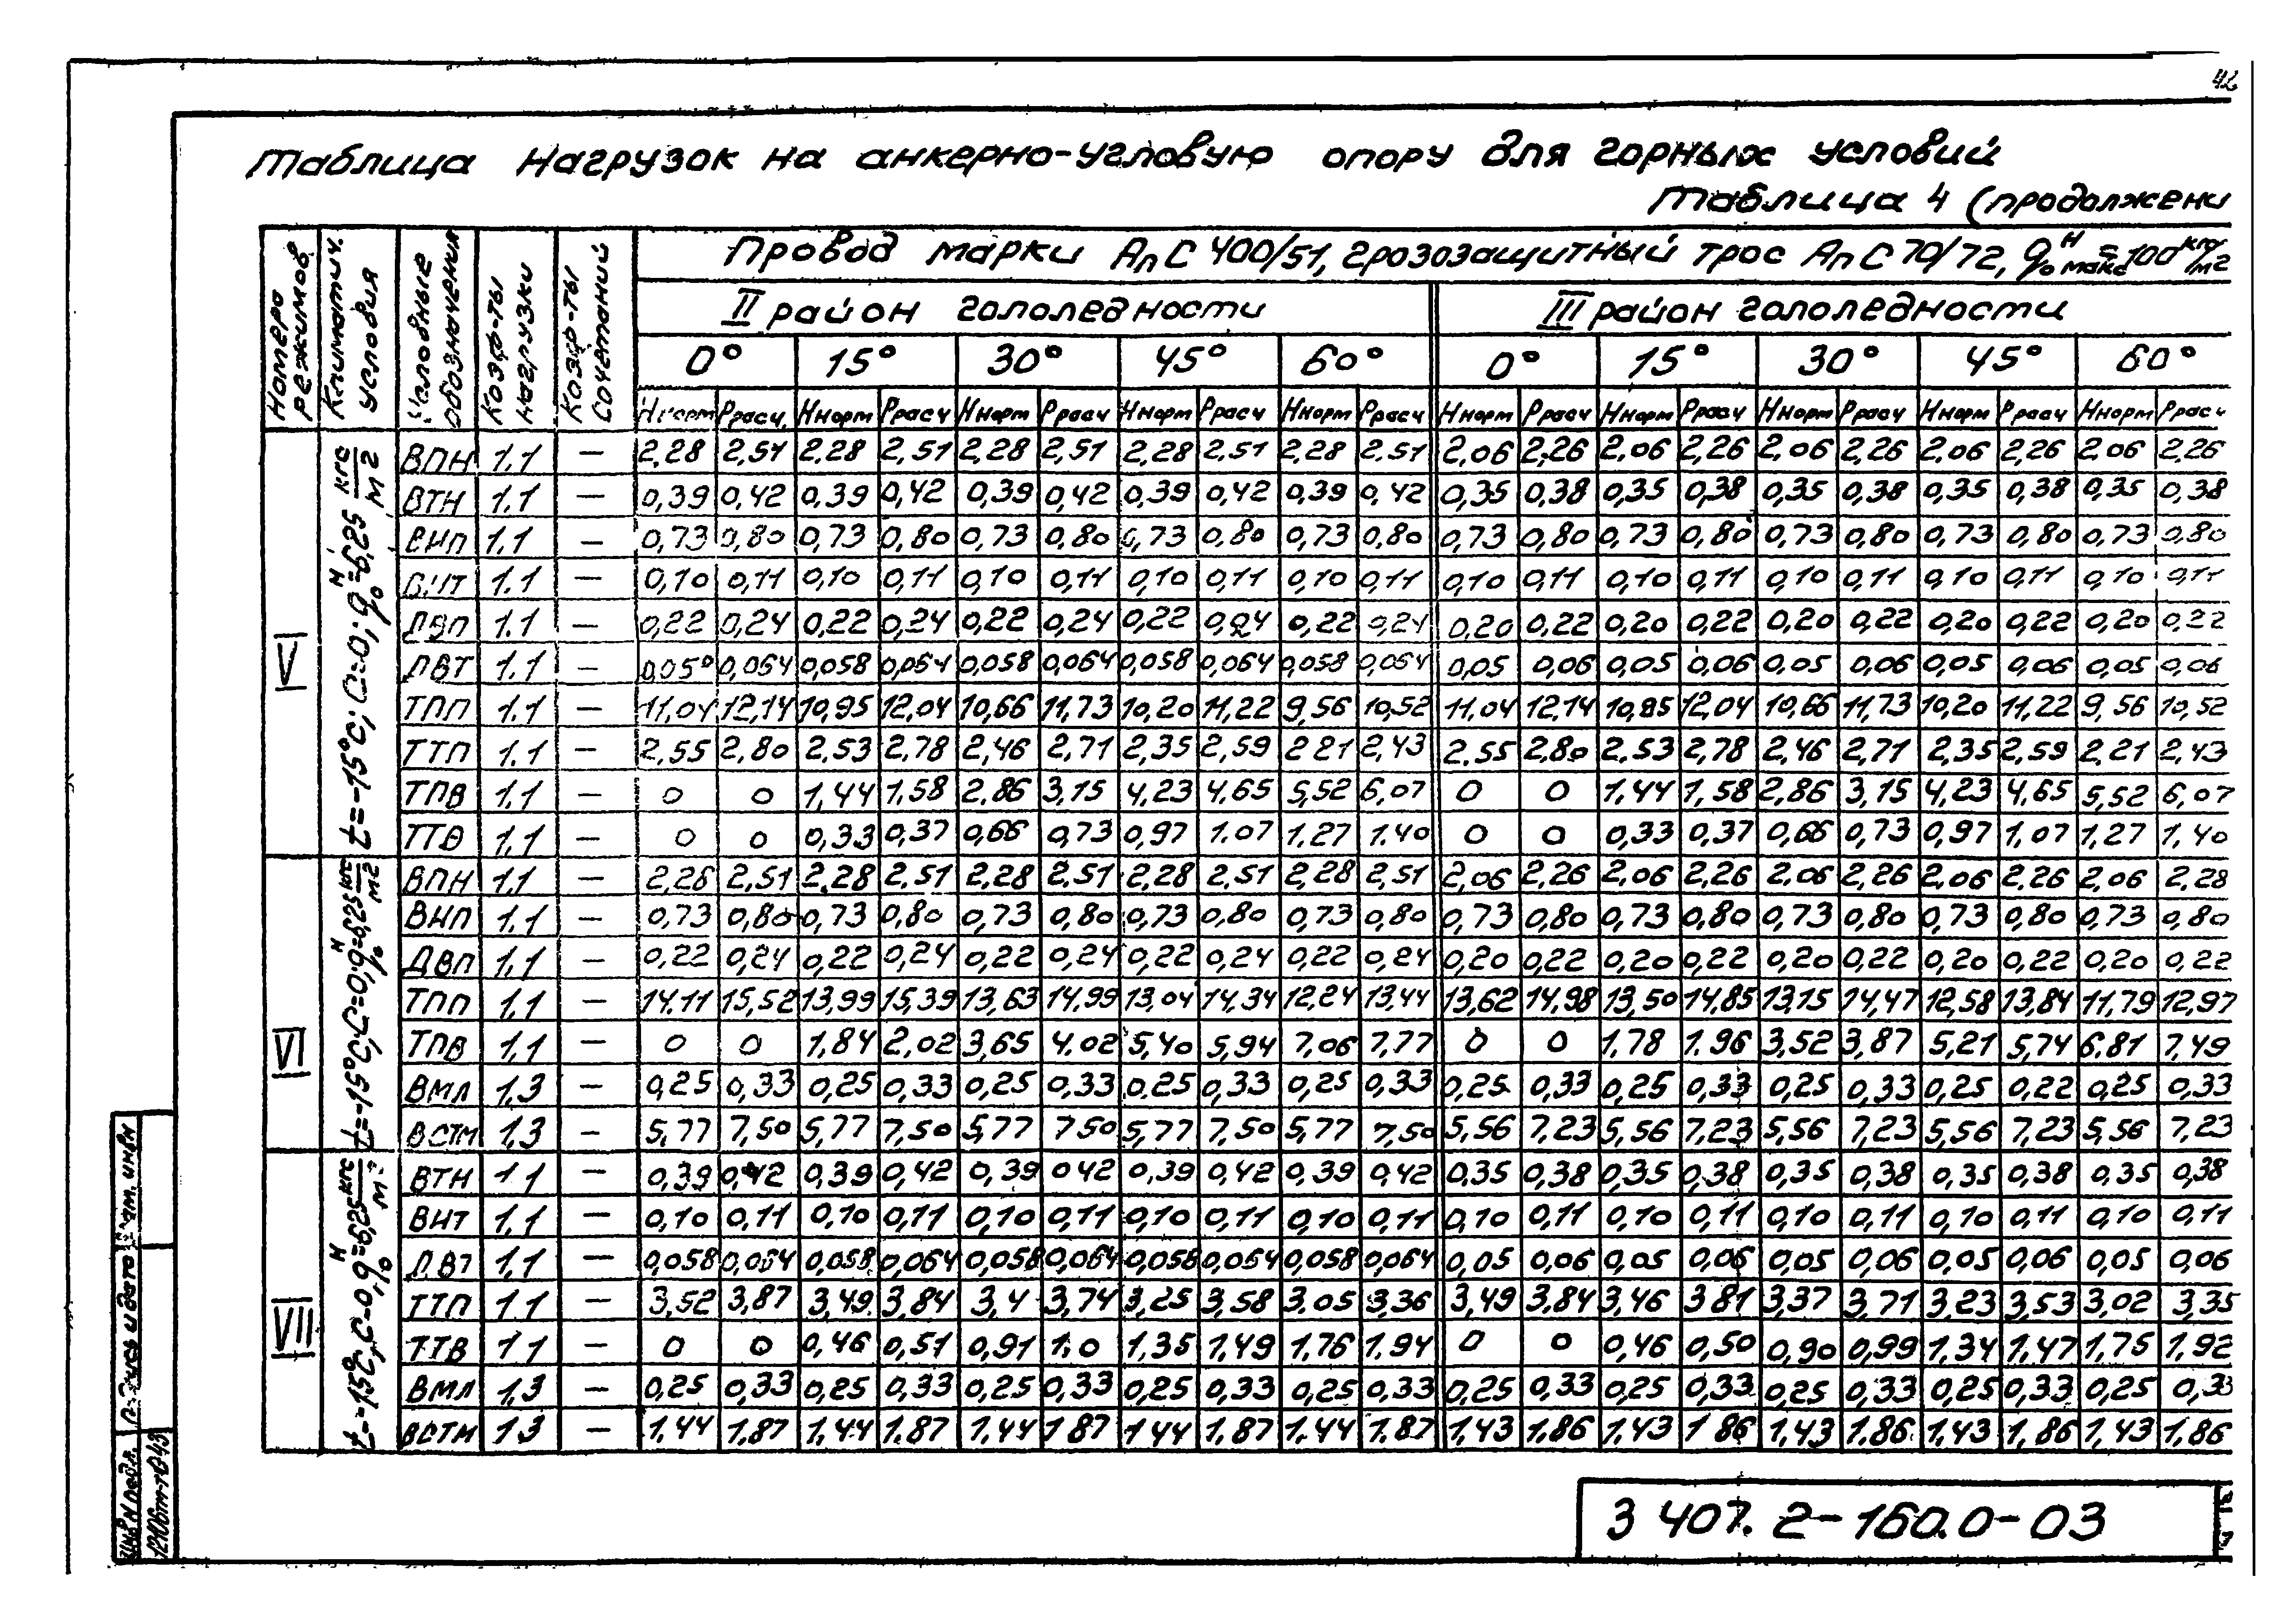 42
Таблица нагрузок на анкерно-угловую опору для горных условий
Таблица 4 (продолжени
Номера режимов
Климатич. условия
Условные обозначения
Коэф-ты нагрузки
Коэф-ты сочетаний
Провод марки АпС 400/51, грозозащитный трос АпС 70/72, q₀ᴴ макс = 100 кгс/м2
II район гололедности III район гололедности
0° 15° 30° 45° 60° 0° 15° 30° 45° 60°
Ннорм Ррасч. Ннорм Ррасч Ннорм Ррасч Ннорм Ррасч Ннорм Ррасч Ннорм Ррасч Ннорм Ррасч Ннорм Ррасч Ннорм Ррасч Ннорм Ррасч
V
t=-15°С, С=0, q₀ᴴ=6,25 кгс/м2
ВПН 1.1 — 2.28 2.51 2.28 2,51 2,28 2,51 2,28 2.51 2.28 2.51 2,06 2,26 2,06 2,26 2,06 2,26 2,06 2,26 2,06 2,26
ВТН 1.1 — 0,39 0,42 0,39 0,42 0,39 0,42 0,39 0,42 0,39 0,42 0,35 0,38 0,35 0,38 0,35 0,38 0,35 0,38 0,35 0,38
ВИП 1.1 — 0,73 0,80 0,73 0,80 0,73 0,80 0,73 0,80 0,73 0,80 0,73 0,80 0,73 0,80 0,73 0,80 0,73 0,80 0,73 0,80
ВИТ 1.1 — 0,10 0,11 0,10 0,11 0,10 0,11 0,10 0,11 0,10 0,11 0,10 0,11 0,10 0,11 0,10 0,11 0,10 0,11 0,10 0,11
ДВП 1.1 — 0,22 0,24 0,22 0,24 0,22 0,24 0,22 0,24 0,22 0,24 0,20 0,22 0,20 0,22 0,20 0,22 0,20 0,22 0,20 0,22
ДВТ 1.1 — 0,058 0,064 0,058 0,064 0,058 0,064 0,058 0,064 0,058 0,064 0,05 0,06 0,05 0,06 0,05 0,06 0,05 0,06 0,05 0,06
ТПП 1.1 — 11,04 12,14 10,95 12,04 10,66 11,73 10,20 11,22 9,56 10,52 11,04 12,14 10,95 12,04 10,66 11,73 10,20 11,22 9,56 10,52
ТТП 1.1 — 2.55 2.80 2.53 2,78 2,46 2,71 2,35 2,59 2 21 2,43 2.55 2,80 2.53 2,78 2,46 2,71 2,35 2,59 2,21 2,43
ТПВ 1.1 — 0 0 1,44 1,58 2,86 3,15 4,23 4,65 5,52 6,07 0 0 1,44 1,58 2,86 3,15 4,23 4,65 5,52 6,07
ТТВ 1.1 — 0 0 0,33 0,37 0,66 0,73 0,97 1.07 1,27 1.40 0 0 0,33 0,37 0,66 0,73 0,97 1,07 1,27 1,40
VI
t=-15°С, С=0, q₀ᴴ=6,25 кгс/м2
ВПН 1.1 — 2,28 2,51 2,28 2,51 2,28 2,51 2,28 2,51 2,28 2,51 2,06 2,26 2,06 2,26 2,06 2,26 2,06 2,26 2,06 2,28
ВИП 1.1 — 0,73 0,80 0,73 0,80 0,73 0,80 0,73 0,80 0,73 0,80 0,73 0,80 0,73 0,80 0,73 0,80 0,73 0,80 0,73 0,80
ДВП 1.1 — 0,22 0,24 0,22 0,24 0,22 0,24 0,22 0,24 0,22 0,24 0,20 0,22 0,20 0,22 0,20 0,22 0,20 0,22 0,20 0,22
ТПП 1.1 — 14.11 15,52 13,99 15,39 13,63 14,99 13,04 14,34 12,24 13,44 13,62 14,98 13,50 14,85 13,15 14,47 12,58 13,84 11,79 12,97
ТПВ 1.1 — 0 0 1,84 2,02 3,65 4.02 5,40 5,94 7,06 7,77 0 0 1,78 1.96 3,52 3,87 5,21 5,74 6.81 7,49
ВМЛ 1,3 — 0,25 0,33 0,25 0,33 0,25 0,33 0,25 0,33 0,25 0,33 0,25 0,33 0,25 0,33 0,25 0,33 0,25 0,22 0,25 0,33
ВСТМ 1,3 — 5,77 7,50 5,77 7,50 5,77 7 50 5,77 7,50 5,77 7,50 5,56 7,23 5,56 7,23 5,56 7,23 5,56 7,23 5,56 7,23
VII
t=-15°С, С=0, q₀ᴴ=6,25 кгс/м2
ВТН 1 1 — 0,39 0,42 0,39 0,42 0,39 0 42 0,39 0,42 0,39 0,42 0,35 0,38 0,35 0,38 0,35 0,38 0,35 0,38 0,35 0,38
ВИТ 1,1 — 0,10 0,11 0,10 0,11 0,10 0,11 0,10 0,11 0,10 0,11 0,10 0,11 0,10 0,11 0,10 0,11 0,10 0,11 0,10 0,11
ДВТ 1,1 — 0,058 0,064 0,058 0,064 0,058 0,064 0,058 0,064 0,058 0,064 0,05 0,06 0,05 0,06 0,05 0,06 0,05 0,06 0,05 0,06
ТТП 1 1 — 3,52 3,87 3,49 3,84 3,4 3,74 3,25 3,58 3,05 3,36 3,49 3,84 3,46 3 81 3,37 3,71 3,23 3,53 3,02 3,35
ТТВ 1 1 — 0 0 0,46 0,51 0,91 1.0 1,35 1,49 1,76 1.94 0 0 0,46 0,50 0,90 0,99 1,34 1,47 1,75 1,92
ВМЛ 1,3 — 0,25 0,33 0,25 0,33 0,25 0,33 0,25 0,33 0,25 0,33 0,25 0,33 0,25 0,33 0,25 0,33 0,25 0,33 0,25 0,33
ВСТМ 1.3 — 1,44 1,87 1,44 1.87 1,44 1 87 1 44 1,87 1,44 1.87 1,43 1,86 1,43 1 86 1,43 1.86 1,43 1,86 1,43 1,86
Инв N подл.
Подпись и дата
инв N
12106тм-т0-43
3 407. 2-160.0-03